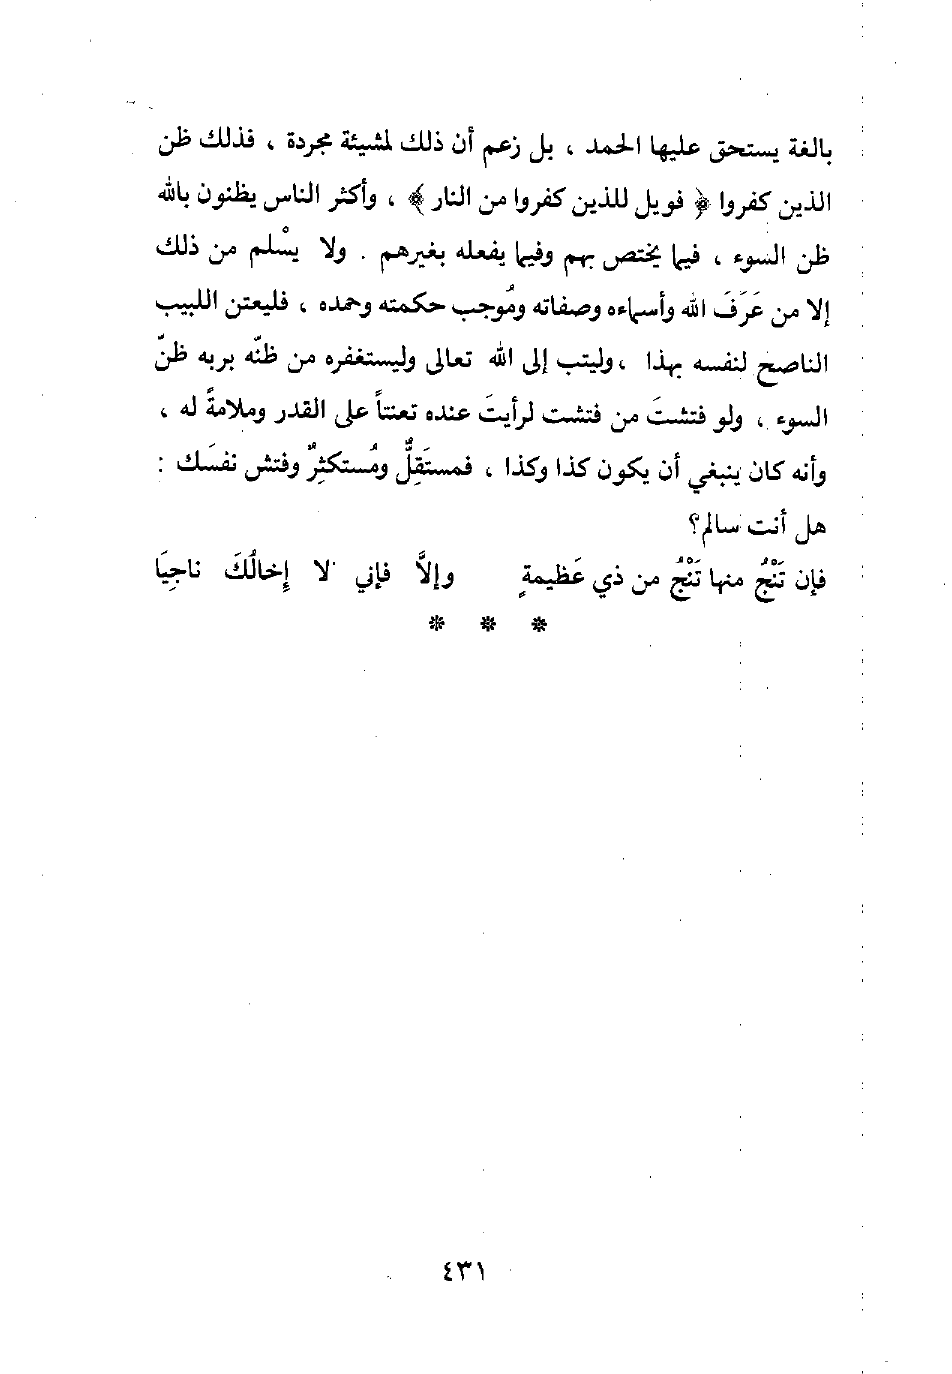 بالغة يستحق عليها الحمد ، بل زعم أن ذلك لمشيئة مجردة ، فذلك ظن
الذين كفروا ﴿ فويل للذين كفروا من النار ﴾ ، وأكثر الناس يظنون بالله
ظن السوء ، فيما يختص بهم وفيما يفعله بغيرهم . ولا يسْلم من ذلك
إلا من عَرَفَ الله وأسماءه وصفاته ومُوجب حكمته وحمده ، فليعتن اللبيب
الناصح لنفسه بهذا ، وليتب إلى الله تعالى وليستغفره من ظنّه بربه ظنّ
السوء ، ولو فتشتَ من فتشت لرأيتَ عنده تعنتاً على القدر وملامةً له ،
وأنه كان ينبغي أن يكون كذا وكذا ، فمستَقِلٌّ ومُستكثِرٌ وفتش نفسَك :
هل أنت سالم؟
فإن تَنْجُ منها تَنْجُ من ذي عَظيمةٍ وإلاَّ فإني لا إخالُكَ ناجِيَا
* * *
٤٣١